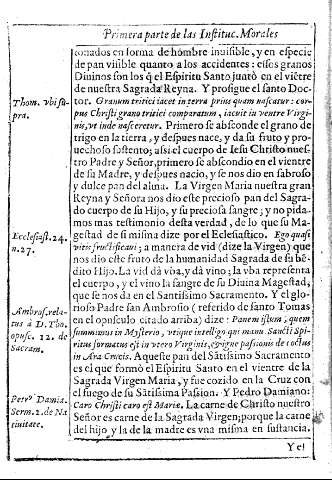 Primera parte de las Instituc. Morales
tonados en forma de hombre inuisible, y en especie
de pan visible quanto a los accidentes: essos granos
Diuinos son los q̃ el Espiritu Santo juntò en el viẽtre
de nuestra Sagrada Reyna. Y prosigue el santo Doc-
Thom. vbi su-
pra.
tor. Granum tritici iacet in terra prius quam nascatur: cor-
pus Christi grano tritici comparatum, iacuit in ventre Virgi-
nis, vt inde nasceretur. Primero se absconde el grano de
trigo en la tierra, y despues nace, y da su fruto y pro-
uechoso sustento; assi el cuerpo de Iesu Christo nues-
tro Padre y Señor, primero se abscondio en el vientre
de su Madre, y despues nacio, y se nos dio en sabroso
y dulce pan del alma. La Virgen Maria nuestra gran
Reyna y Señora nos dio este precioso pan del Sagra-
do cuerpo de su Hijo, y su preciosa sangre; y no pida-
mos mas testimonio desta verdad, de lo que su Ma-
Ecclesiast. 24.
n. 27.
gestad de si misma dize por el Eclesiastico. Ego quasi
vitis fructificaui; a manera de vid (dize la Virgen) que
nos dio este fruto de la humanidad Sagrada de su bẽ-
dito Hijo. La vid dà vba, y dà vino; la vba representa
el cuerpo, y el vino la sangre de su Diuina Magestad,
que se nos da en el Santissimo Sacramento. Y el glo-
Ambros. rela-
tus à D. Tho.
opusc. 12. de
Sacram.
rioso Padre san Ambrosio (referido de santo Tomas
en el opusculo citado arriba) dize: Panem istum, quem
summimus in Mysterio, vtique intelligo qui manu Sancti Spi-
ritus formatus est in vtero Virginis, & igne passionis decoctus
in Ara Crucis. Aqueste pan del Sãtissimo Sacramento
es el que formò el Espiritu Santo en el vientre de la
Sagrada Virgen Maria, y fue cozido en la Cruz con
el fuego de su Sãtissima Passion. Y Pedro Damiano:
Petrº Damia.
Serm. 2. de Na
tiuitate.
Caro Christi caro est Mariæ. La carne de Christo nuestro
Señor es carne de la Sagrada Virgen; porque la carne
del hijo y la de la madre es vna misma en sustancia.
Y el